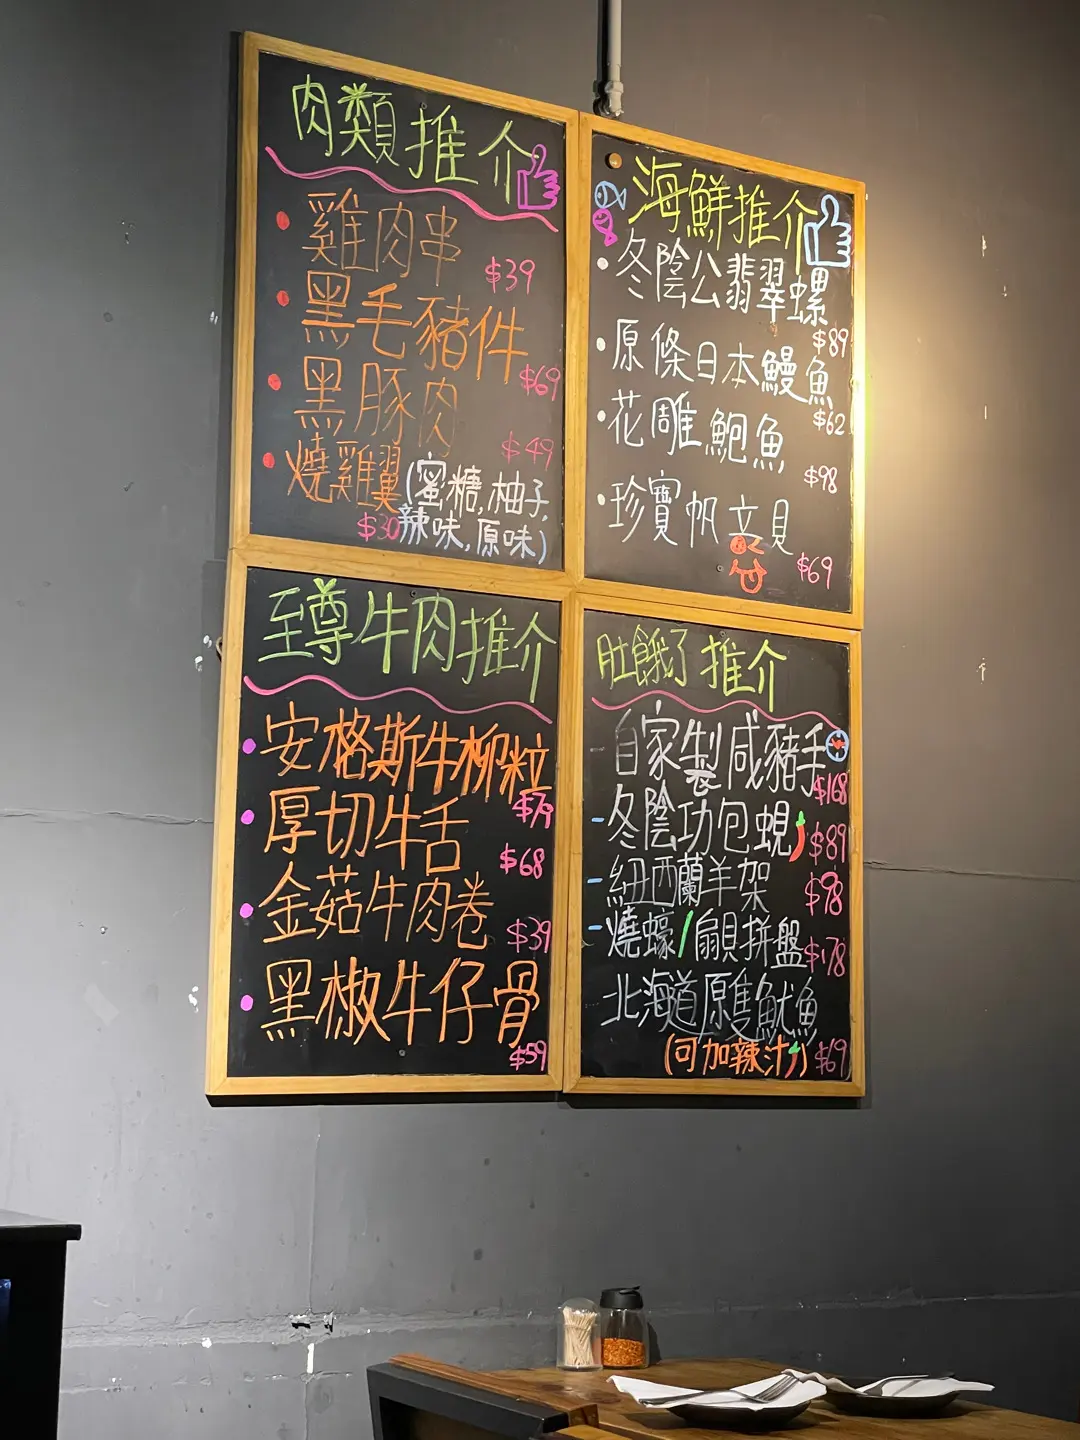 肉類推介
雞肉串
$39
黑毛豬件
$69
黑豚肉
$49
燒雞翼(蜜糖,柚子,
$30辣味,原味)
海鮮推介
冬陰公翡翠螺
$89
原條日本鰻魚
$62
花雕鮑魚
$98
珍寶帆立貝
$69
至尊牛肉推介
安格斯牛柳粒
$79
厚切牛舌
$68
金菇牛肉卷
$39
黑椒牛仔骨
$59
肚餓了推介
自家製咸豬手
$168
冬陰功包蜆
$89
紐西蘭羊架
$98
燒蠔/扇貝拼盤
$178
北海道原隻魷魚
(可加辣汁) $69